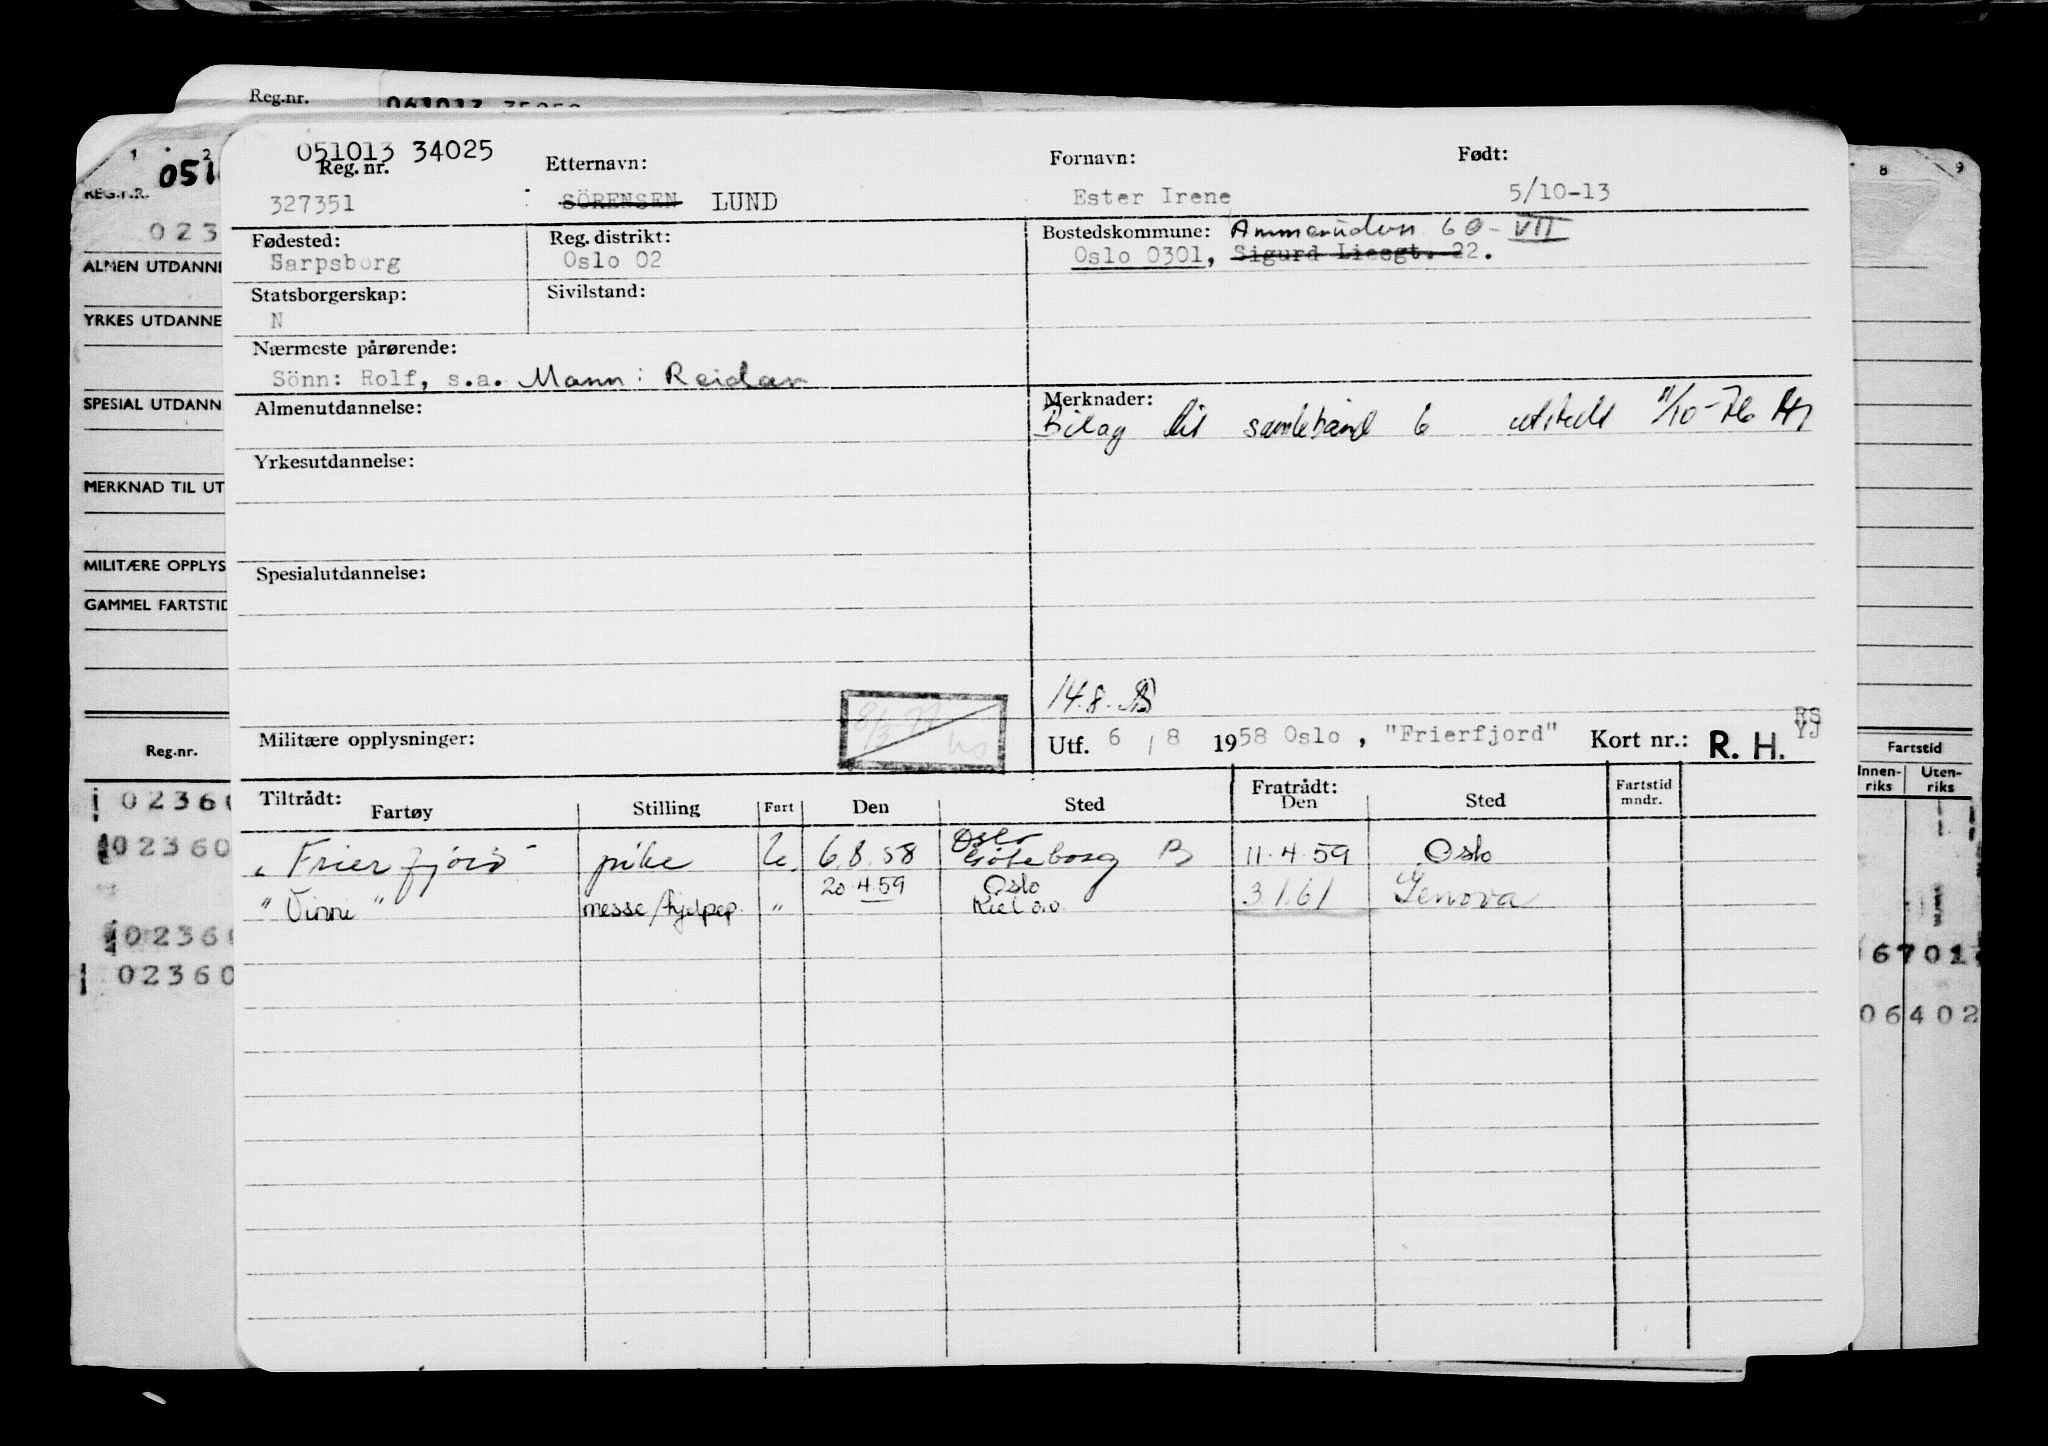 Reg.nr.
051013 34025
Reg. nr. Etternavn: Fornavn: Født:
327351 SÖRENSEN LUND Ester Irene 5/10-13
Fødested: Reg. distrikt: Bostedskommune: 60-VII
Sarpsborg Oslo 02 Oslo 0301, Sigurd Liesgt. 22.
Statsborgerskap: Sivilstand:
N
Nærmeste pårørende:
Sönn: Rolf, s.a. Mann: Reidar
Almenutdannelse: Merknader:
Bilag til samlebånd 6 utstedt 11/10-76
Yrkesutdannelse:
Spesialutdannelse:
14.8.
Militære opplysninger: Utf. 6 / 8 1958 Oslo, "Frierfjord" Kort nr.: R. H. RS YJ
Tiltrådt: Fratrådt:
Fartøy Stilling Fart Den Sted Den Sted Fartstid mndr.
"Frierfjord" pike U. 6.8.58 Oslo Göteborg B 11.4.59 Oslo
"Vinni" messe/hjelpep. " 20.4.59 Oslo Kiel o.o. 3/1.61 Genova
1 2
051
REG.NR.
023
ALMEN UTDANNE
YRKES UTDANNE
SPESIAL UTDANN
MERKNAD TIL UT
MILITÆRE OPPLYS
GAMMEL FARTSTID
Reg.nr.
02360
02360
02360
02360
8 9
Fartstid
Innen-riks Uten-riks
6701
06402